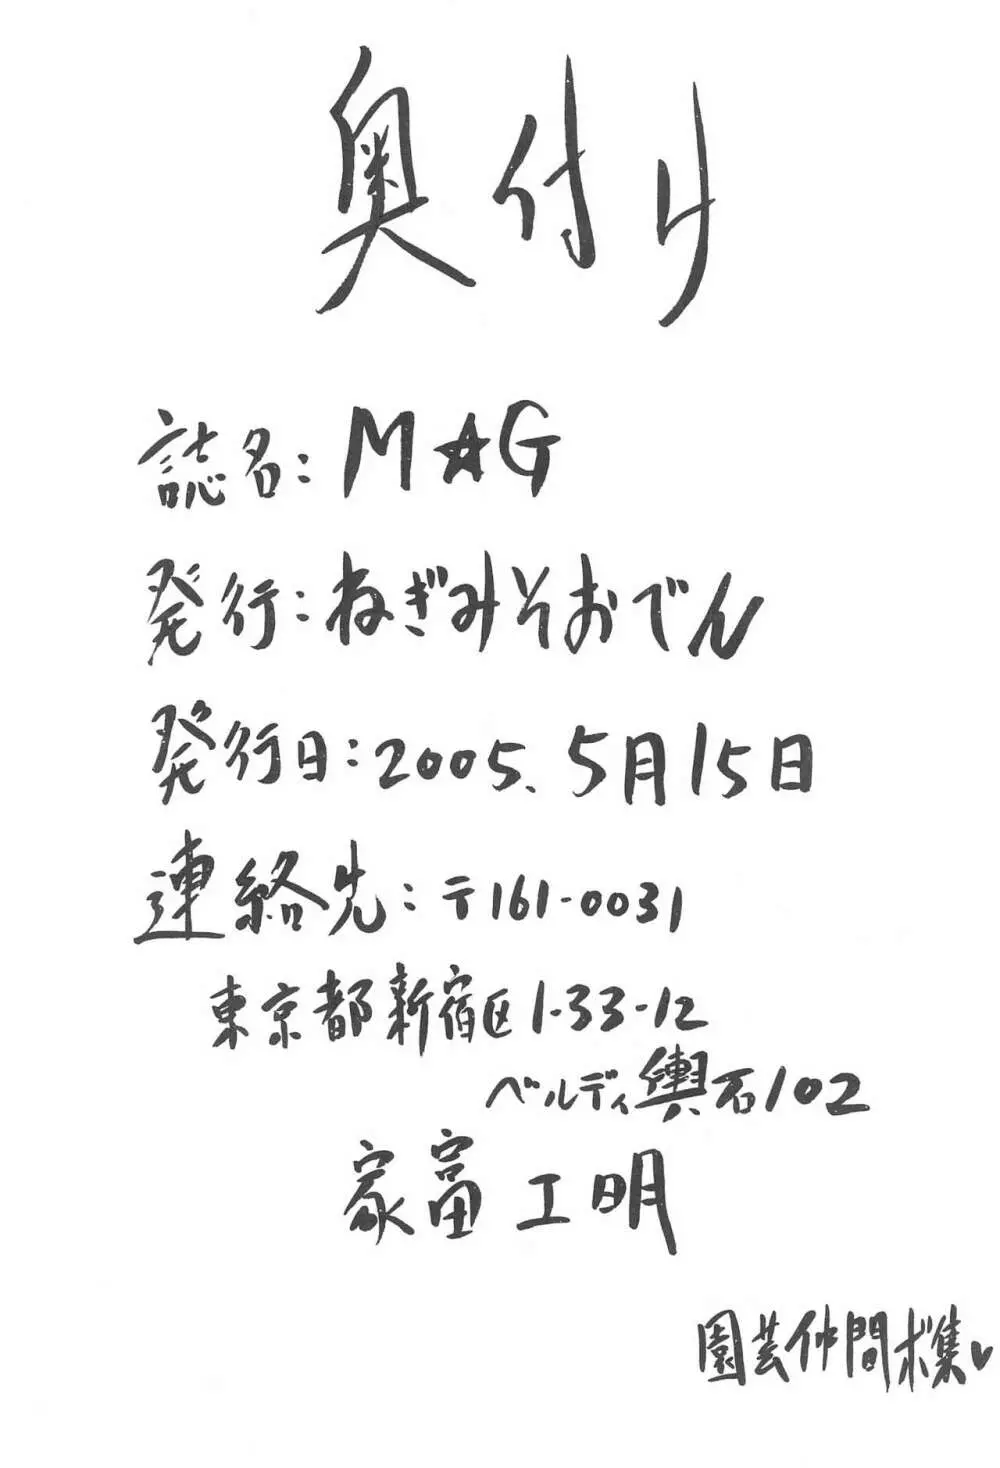 奥付け
誌名：M★G
発行：ねぎみそおでん
発行日：2005.5月15日
連絡先：〒161-0031
東京都新宿区1-33-12
ベルディ輿石102
家富工明
園芸仲間ボ集♥